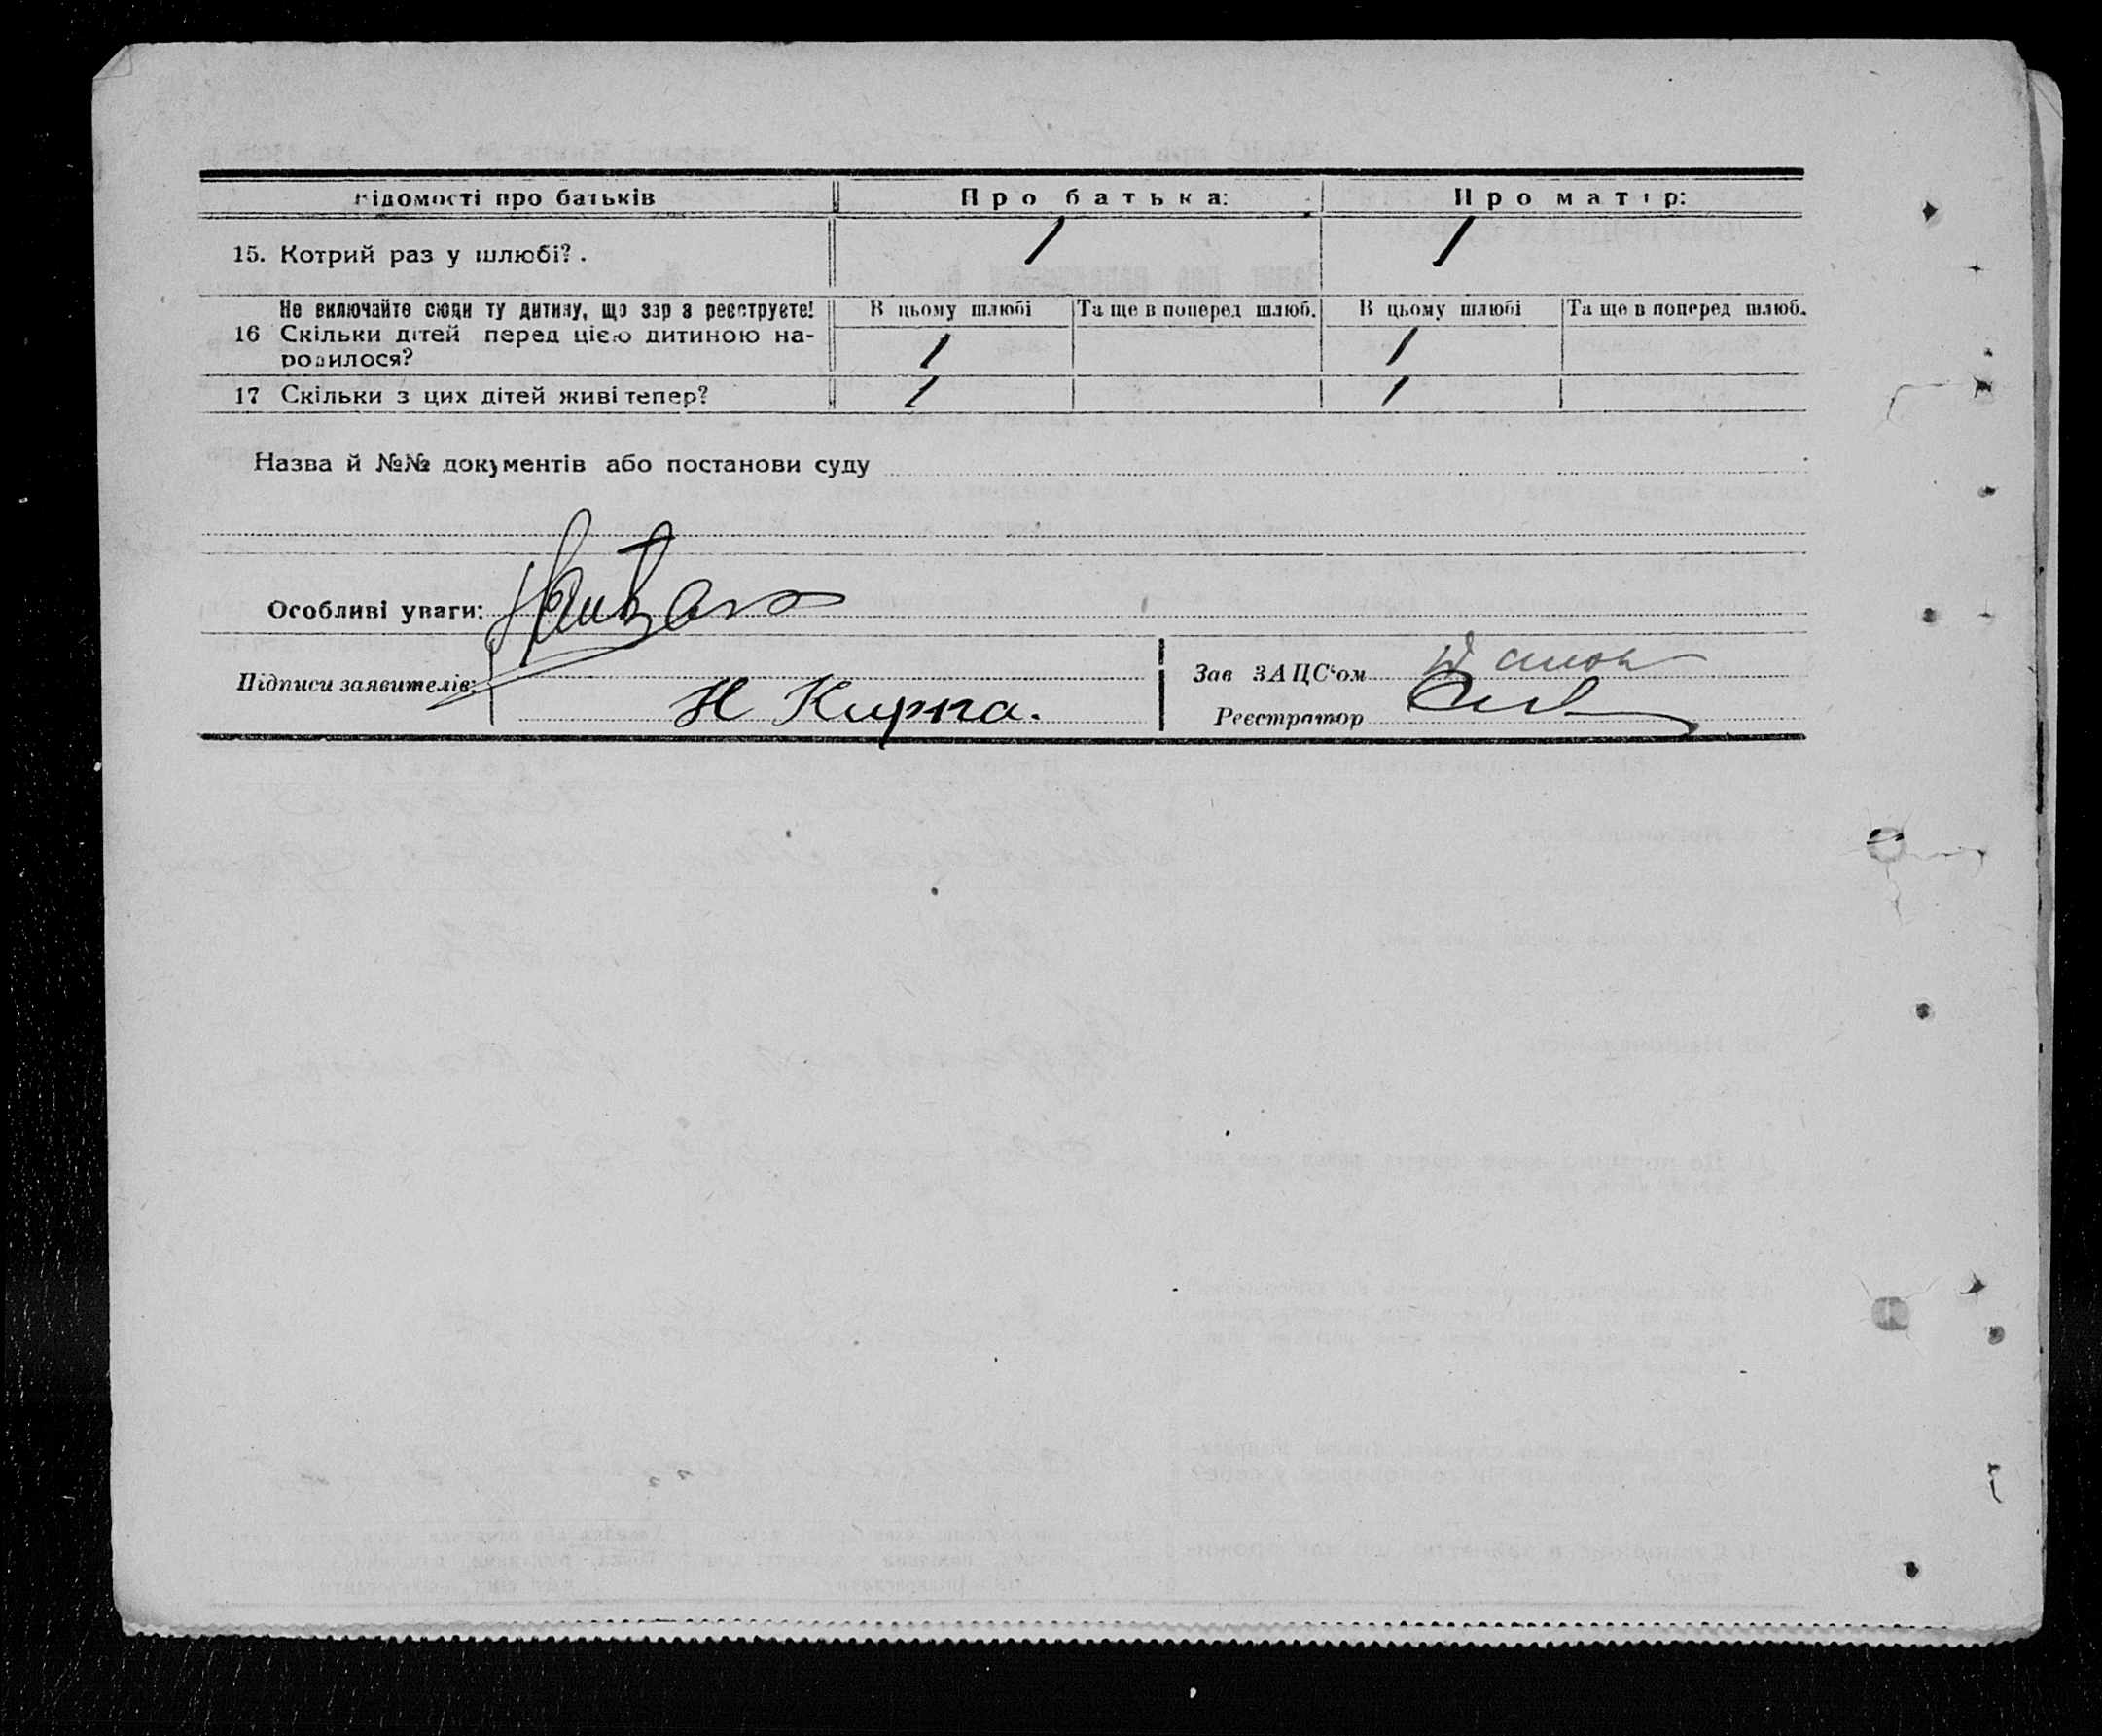 Відомості про батьків Про батька: Про матір:
15. Котрий раз у шлюбі?. 1 1
Не включайте сюди ту дитину, що зараз реєструєте! В цьому шлюбі Та ще в поперед шлюб. В цьому шлюбі Та ще в поперед шлюб.
16 Скільки дітей перед цією дитиною на-
родилося? 1 1
17 Скільки з цих дітей живі тепер? 1 1
Назва й №№ документів або постанови суду
Особливі уваги:
Підписи заявителів: Зав ЗАЦС'ом
Н Кирпа. Реєстратор